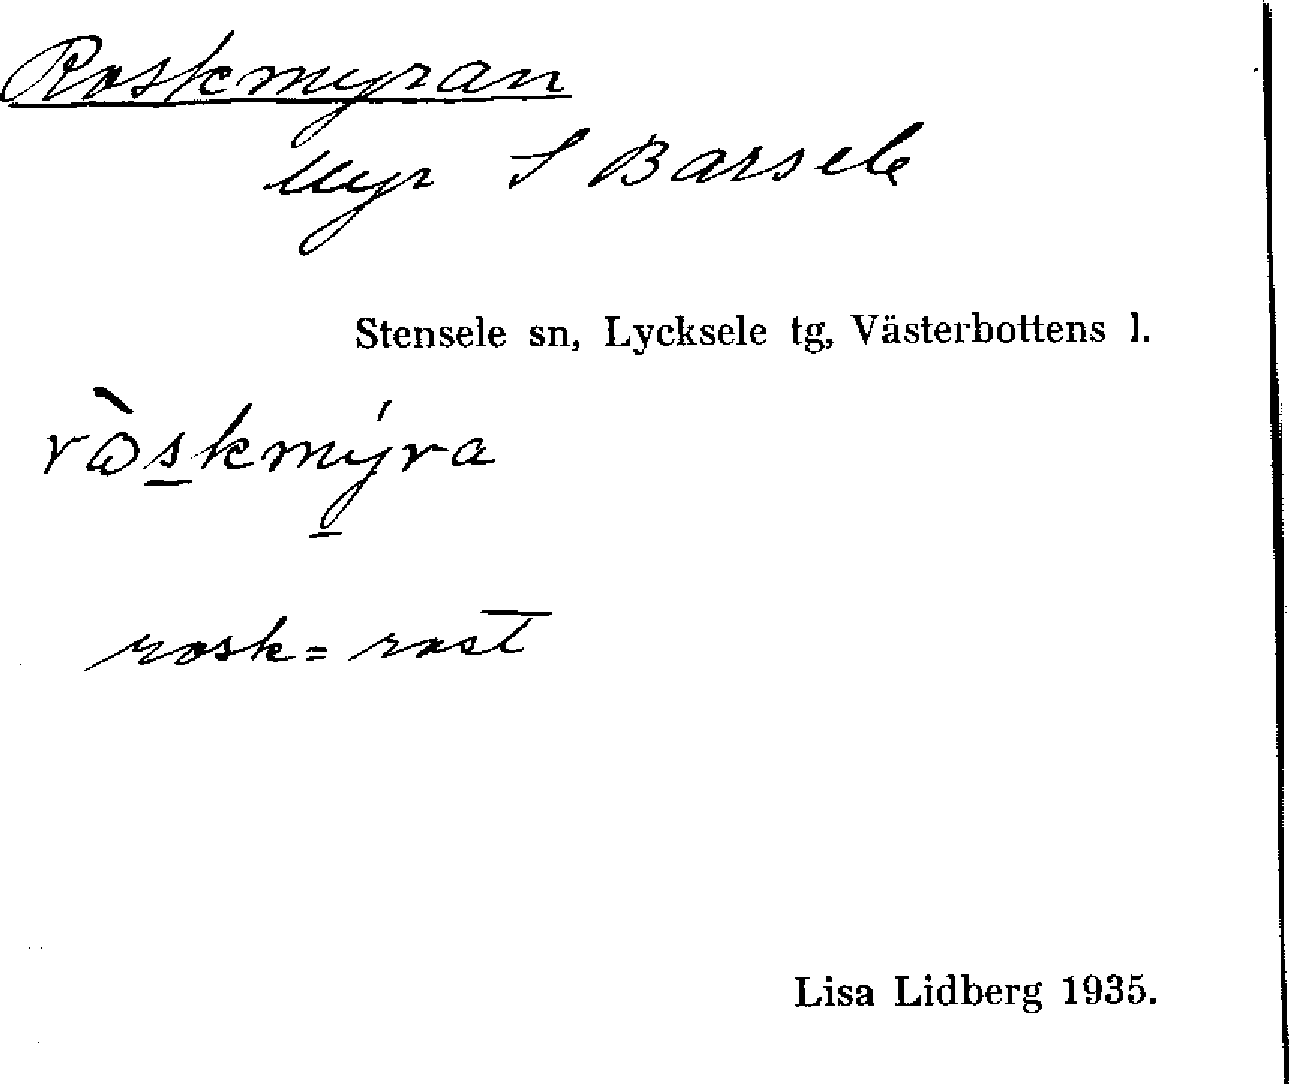 Roskmyran
Myr S Barsele
Stensele sn, Lycksele tg, Västerbottens l.
ròskmýra
rosk = rost
Lisa Lidberg 1935.